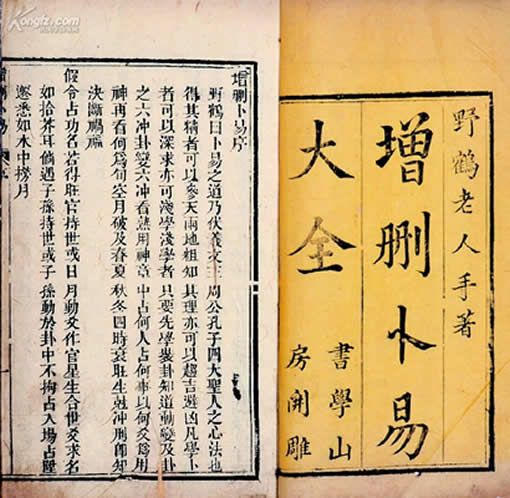 野鶴老人手著
增刪卜易
大全
書學山
房開雕
增刪卜易序
野鶴曰卜易之道乃伏羲文王周公孔子四大聖人之心法也
得其精者可以參天兩地粗知其理亦可以趨吉避凶凡學卜
者可以深求亦可淺學淺學者只要先學裝卦知道動變及卦
之六冲卦變六冲看熟用神章中占何人占何事以何爻爲用
神再看何爲旬空月破及春夏秋冬四時衰旺生尅冲刑即知
決斷禍福
假令占功名若得旺官持世或日月動爻作官星生合世爻求名
如拾芥耳倘遇子孫持世或子孫動於卦中不拘占入場占陞
遷悉如水中撈月
Kongfz.com